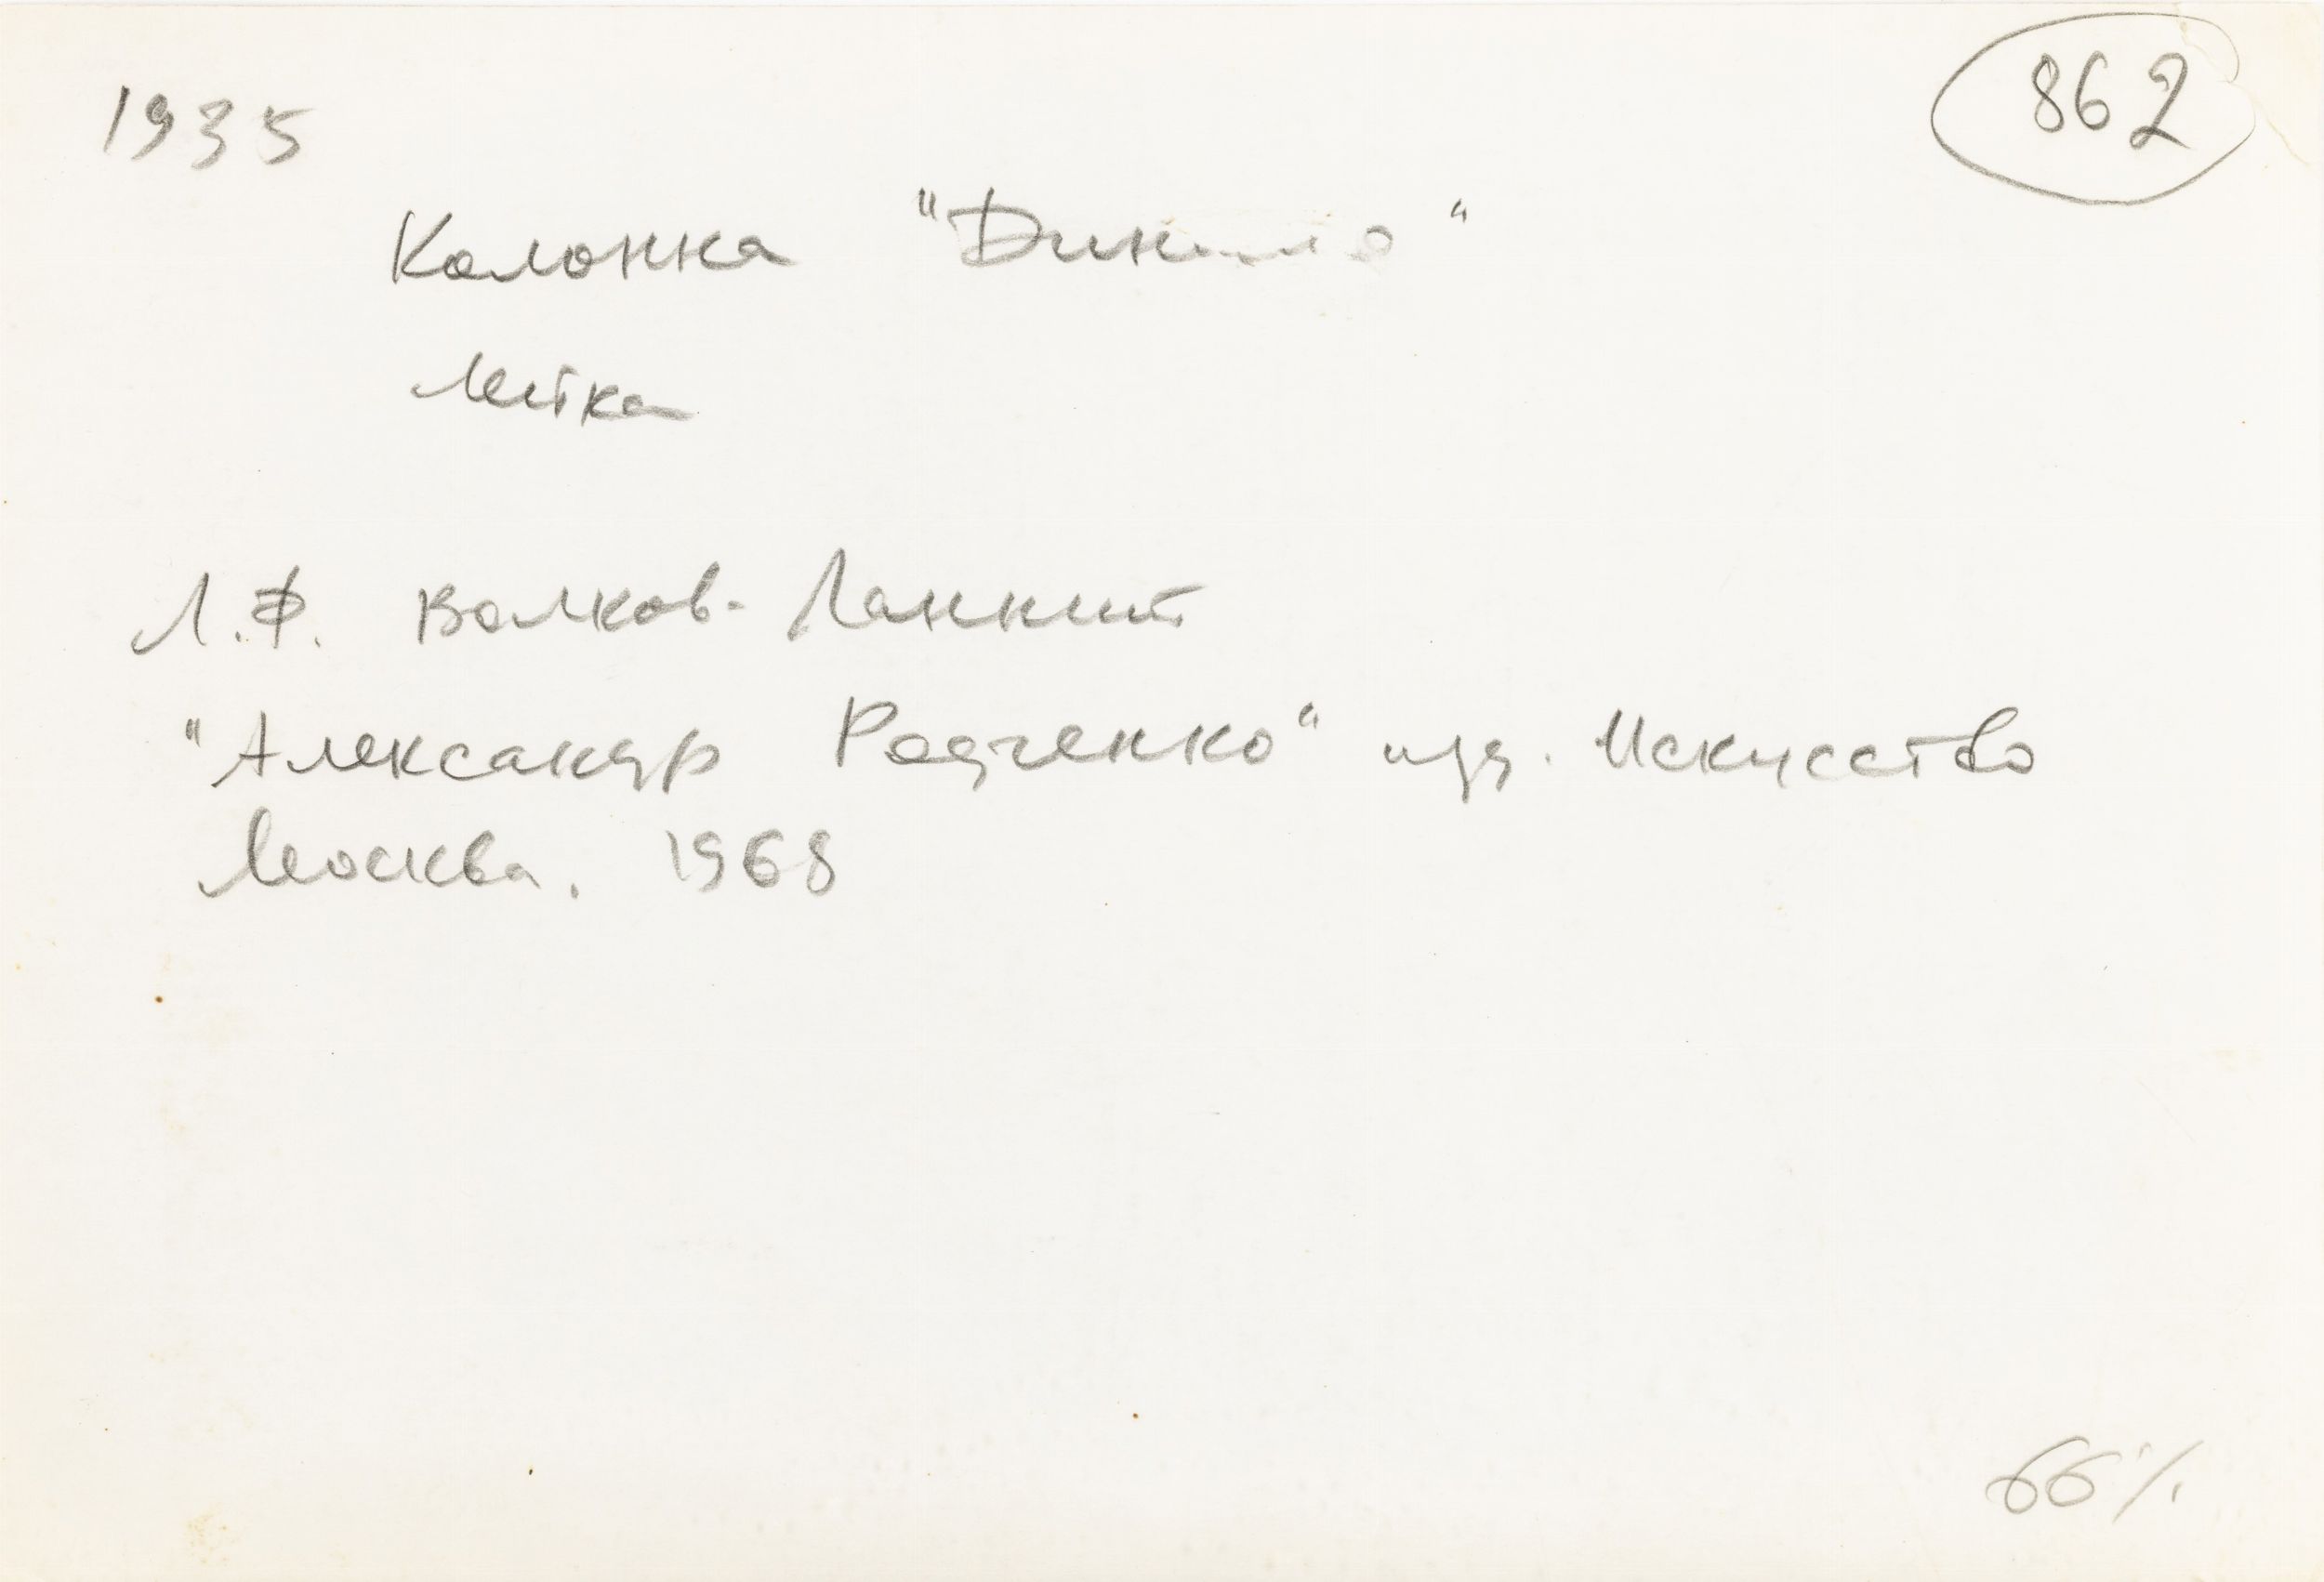 1935
862
Колонка "Динамо"
Метка
Л.Ф. Волков-Ланнит
"Александр Родченко" изд. Искусство
Москва. 1968
66%